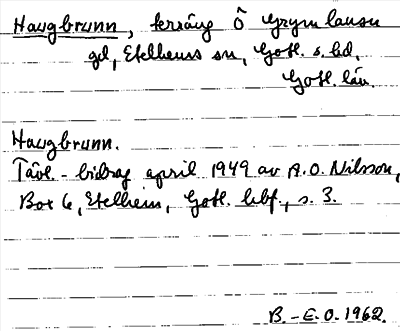 Haugbrunn, terräng Ö Grymlauser
gd, Etelhems sn, Gotl. s. hd,
Gotl. län.
Haugbrunn.
Tävl.-bidrag april 1949 av A.O. Nilsson,
Box 6, Etelhem, Gotl. hbf., s. 3.
B.-E.O. 1962.